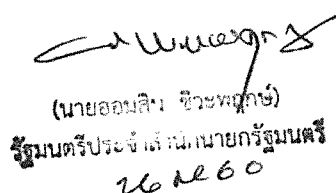 (นายออมสิน ชีวะพฤกษ์)
รัฐมนตรีประจำสำนักนายกรัฐมนตรี
26 เมย 60